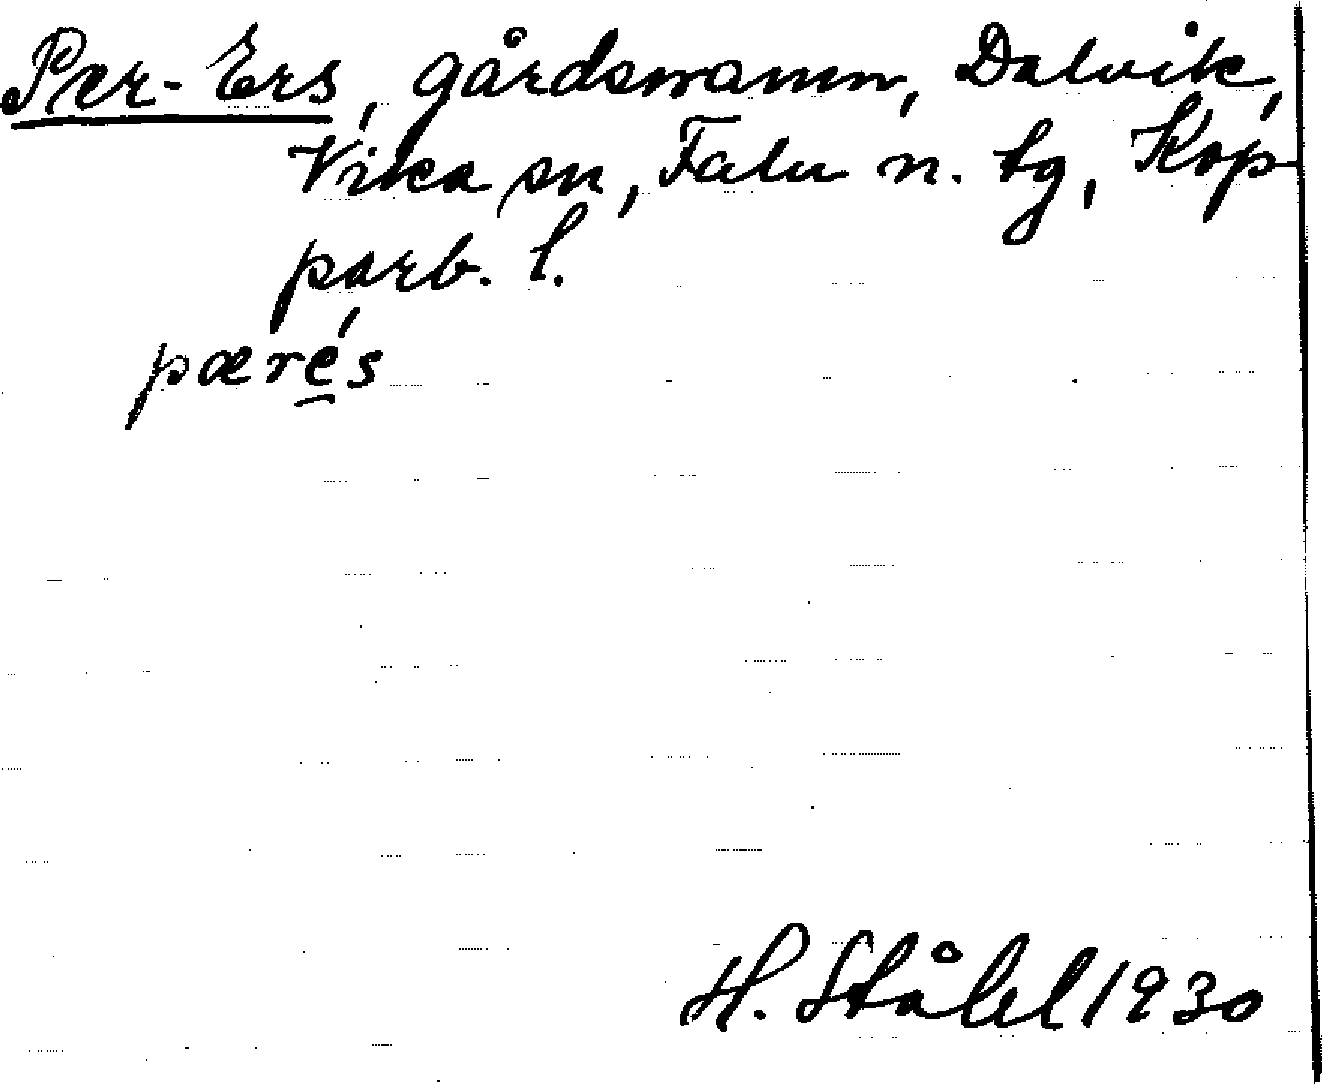 Per-Ers, gårdsnamn, Dalvik,
Vika sn, Falu n. tg, Kop-
parb. l.
pærés
H. Ståhl 1930